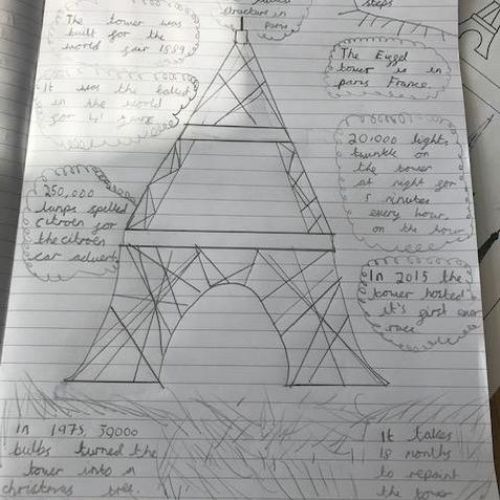 structure in
Paris
steps
The tower was
built for the
world fair 1889
It was the tallest
in the world
for 41 years
The Eiffel
tower is in
paris France
20,000 lights
twinkle on
the tower
at night for
5 minutes
every hour,
on the hour
250,000
lamps spelled
citroen for
the citroen
car advert
In 2015 the
tower hosted
it's first ever
race
in 1975, 30000
bulbs turned the
tower into a
christmas tree.
It takes
18 months
to repaint
the tower